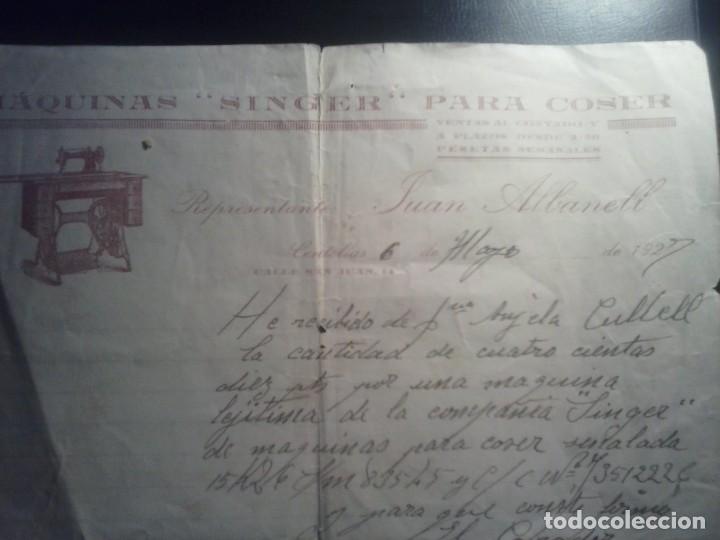 MÁQUINAS "SINGER" PARA COSER
VENTAS AL CONTADO Y
A PLAZOS DESDE 2'50
PESETAS SEMANALES
Representante: Juan Albanell
Centellas 6 de Mayo de 1927
CALLE SAN JUAN, 14
He recibido de Cullell
la cantidad de cuatro cientas
diez pts por una maquina
lejitima de la compañia "Singer"
de maquinas para coser señalada
15K26 83545 y
y para que conste firmo
El
todocoleccion
todocoleccion.net